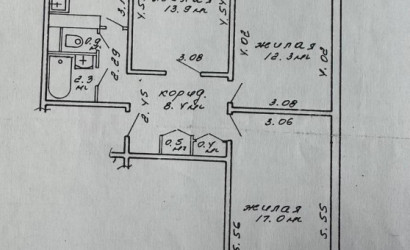 жилая
13.9 м²
4.54
3.08
4.02
жилая
12.3 м²
4.02
2.29
2.3
м²
2.45
корид.
8.4 м²
3.08
3.06
0.5
м²
0.4
м²
жилая
17.0 м²
5.56
5.55